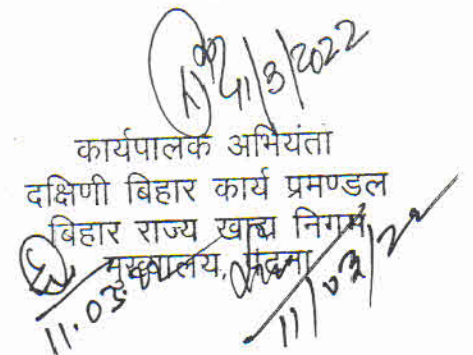 11/3/2022
कार्यपालक अभियंता
दक्षिणी बिहार कार्य प्रमण्डल
बिहार राज्य खाद्य निगम
मुख्यालय, पटना
11.03.
11/03/22